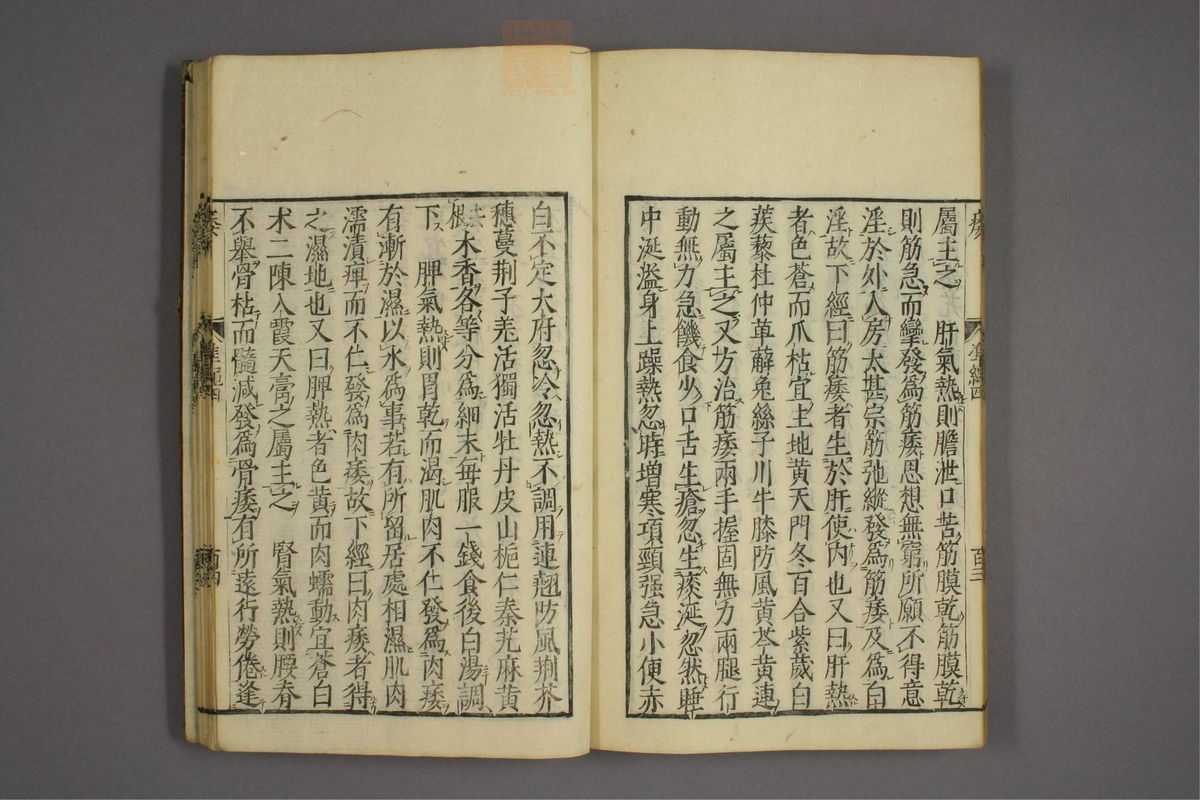 屬主之　肝氣熱則膽泄口苦筋膜乾筋膜乾
則筋急而攣發爲筋痿思想無窮所願不得意
淫於外入房太甚宗筋弛縱發爲筋痿及爲白
淫故下經曰筋痿者生於肝使内也又曰肝熱
者色蒼而爪枯宜主地黃天門冬百合紫葳白
蒺藜杜仲萆薢兔絲子川牛膝防風黃芩黃連
之屬主之又方治筋痿兩手握固無力兩腿行
動無力急饑食少口舌生瘡忽生痰涎忽然睡
中涎溢身上躁熱忽時增寒項頸强急小便赤
白不定大府忽冷忽熱不調用連翹防風荆芥
穗蔓荆子羌活獨活牡丹皮山梔仁秦艽麻黃
去根木香各等分爲細末每服一錢食後白湯調
下　脾氣熱則胃乾而渴肌肉不仁發爲肉痿
有漸於濕以水爲事若有所留居處相濕肌肉
濡漬痺而不仁發爲肉痿故下經曰肉痿者得
之濕地也又曰脾熱者色黃而肉蠕動宜蒼白
术二陳入霞天膏之屬主之　腎氣熱則腰脊
不舉骨枯而髓減發爲骨痿有所遠行勞倦逢
準繩四
百四